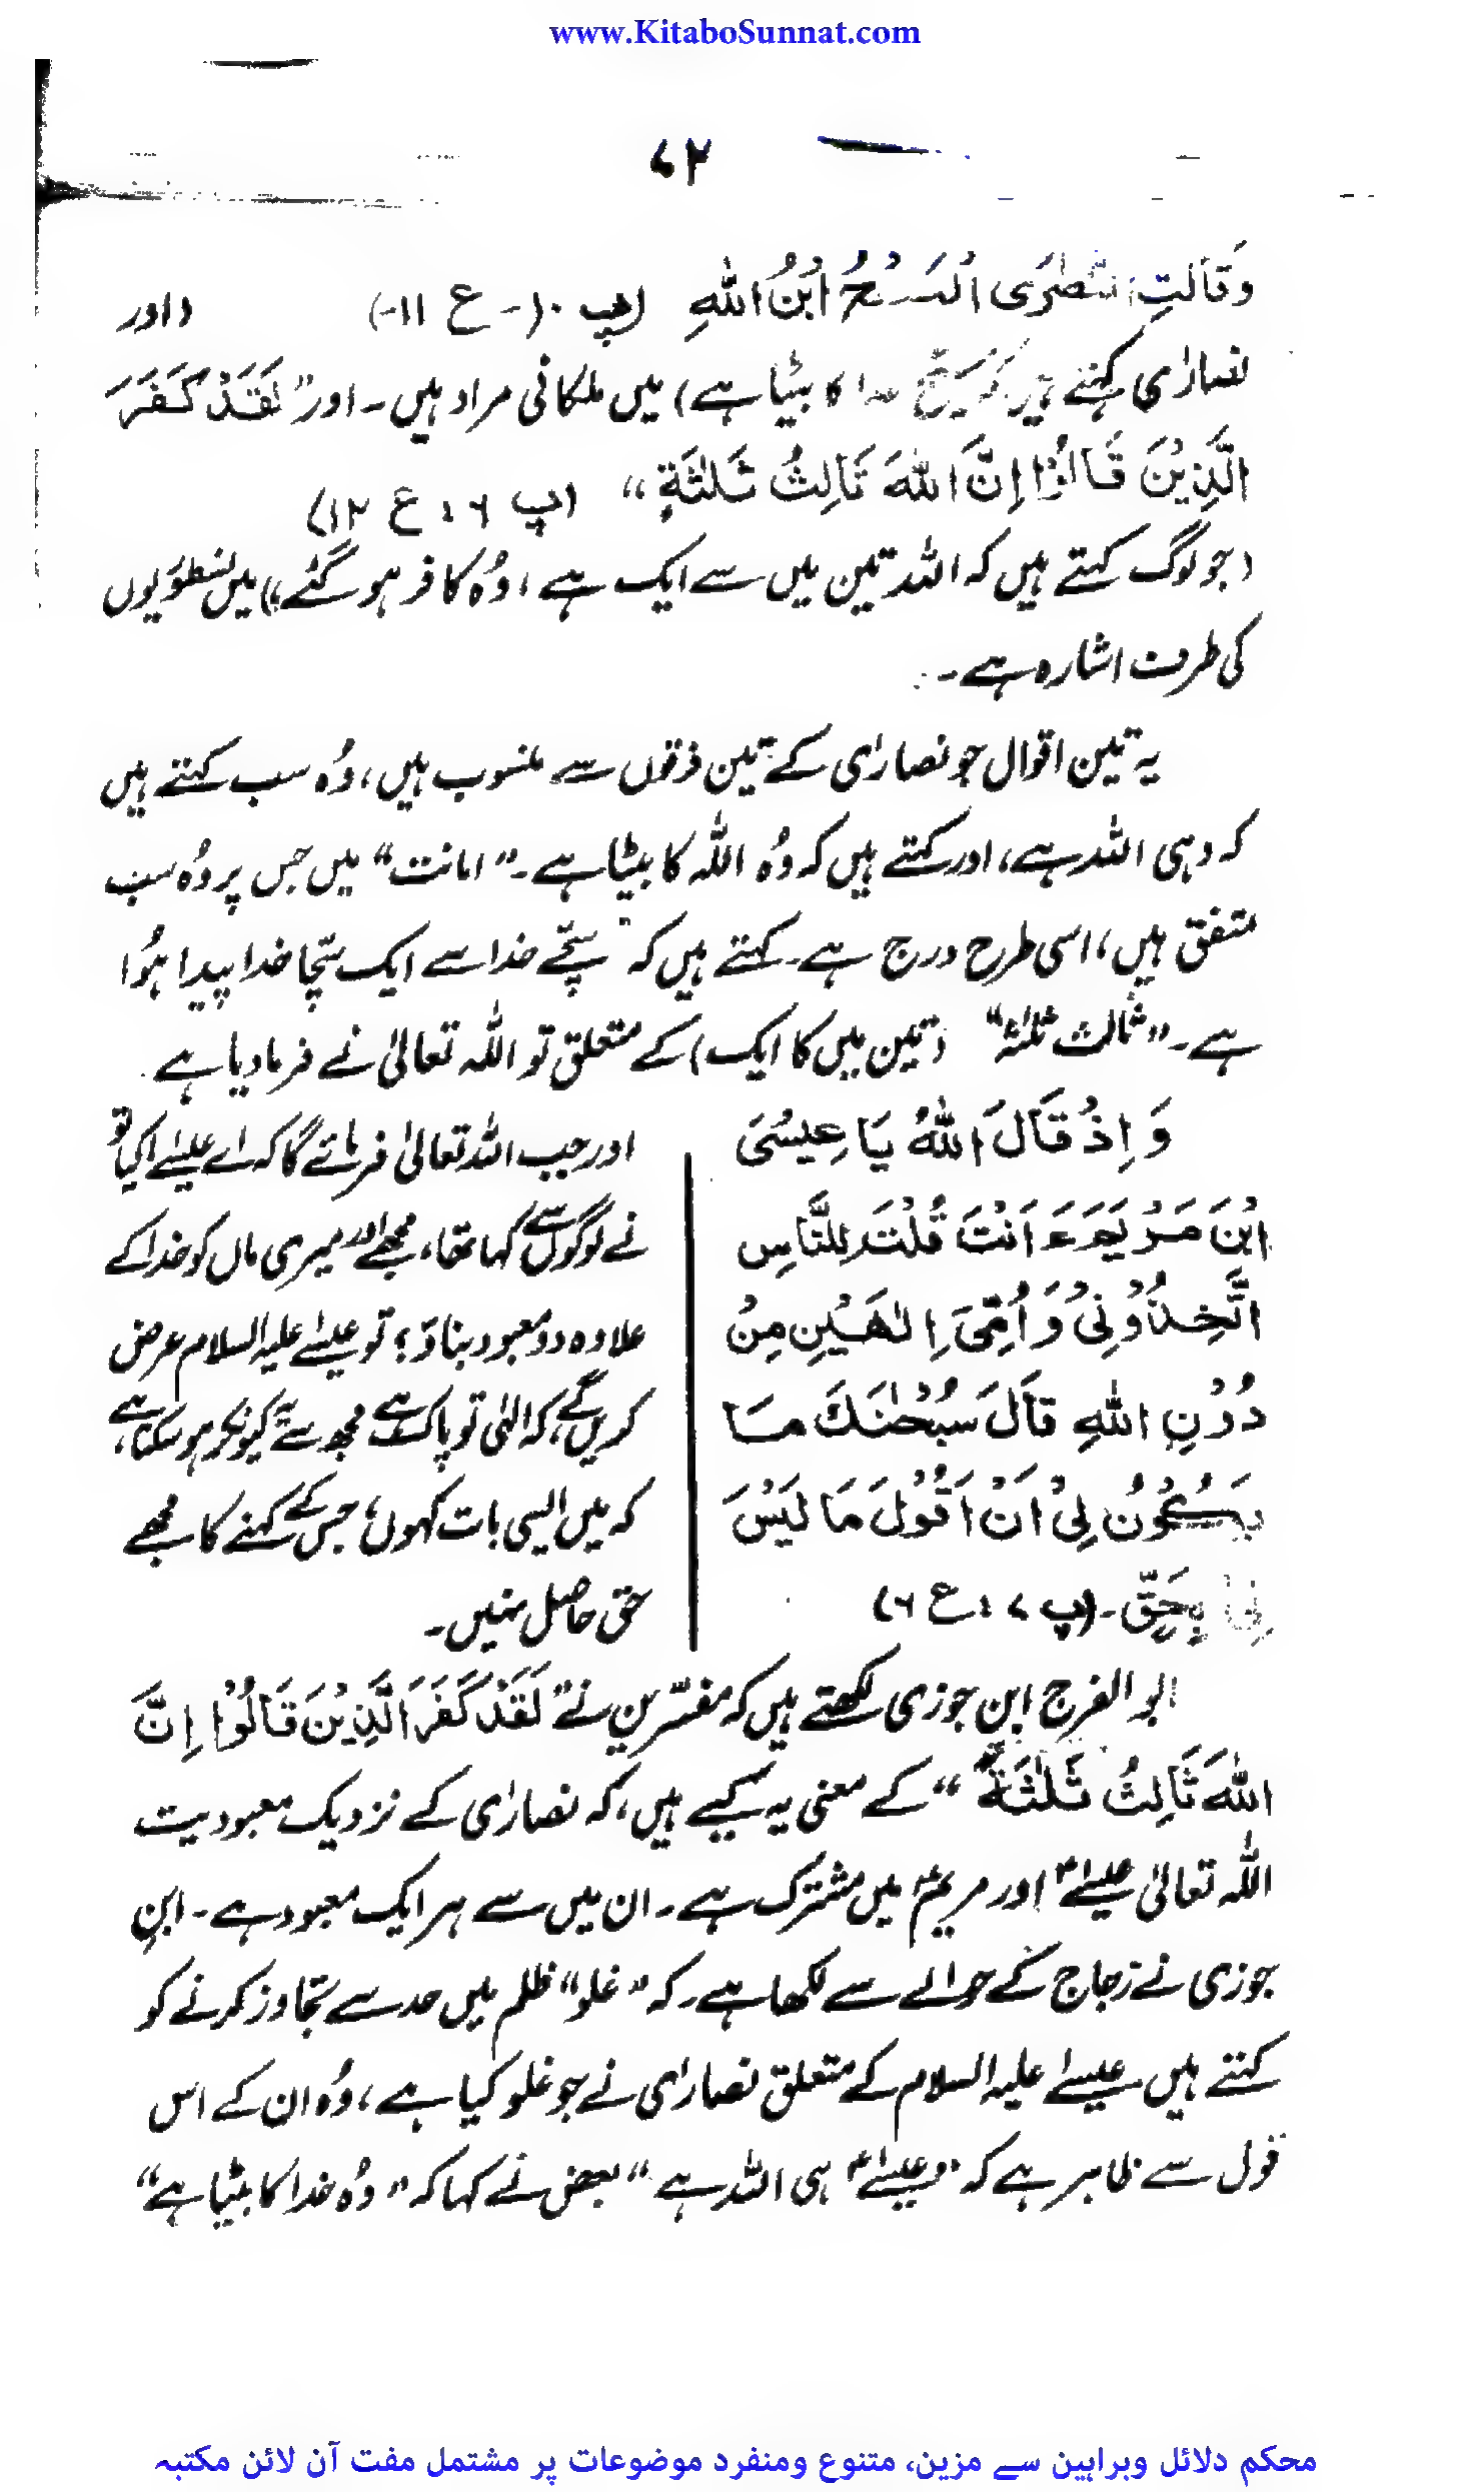 www.KitaboSunnat.com
۷۲
وَقَالَتِ النَّصٰرَى الْمَسِيْحُ ابْنُ اللهِ (پ ۱۰ - ع ۱۱-) (اور
نصارٰی کہتے ہیں کہ مسیح خدا کا بیٹا ہے) میں ملکانی مراد ہیں۔ اور "لَقَدْ كَفَرَ
الَّذِيْنَ قَالُوْا اِنَّ اللهَ ثَالِثُ ثَلٰثَةٍ" (پ ۶ : ع ۱۲)
(جو لوگ کہتے ہیں کہ اللہ تین میں سے ایک ہے، وُہ کافر ہو گئے،) میں نسطوریوں
کی طرف اشارہ ہے۔
یہ تین اقوال جو نصارٰی کے تین فرقوں سے منسوب ہیں، وُہ سب کہتے ہیں
کہ وہی اللہ ہے، اور کہتے ہیں کہ وُہ اللہ کا بیٹا ہے۔ "امانت" میں جس پر وُہ سب
متفق ہیں، اسی طرح درج ہے۔ کہتے ہیں کہ "سچّے خدا سے ایک سچّا خدا پیدا ہُوا
ہے۔ "ثالث ثلٰثۃ" (تین میں کا ایک) کے متعلق تو اللہ تعالیٰ نے فرما دیا ہے۔
وَ اِذْ قَالَ اللهُ يَا عِيْسُىَ
ابْنَ مَرْيَمَ ءَ اَنْتَ قُلْتَ لِلنَّاسِ
اتَّخِذُوْنِىْ وَ اُمِّىَ اِلٰهَيْنِ مِنْ
دُوْنِ اللهِ قَالَ سُبْحٰنَكَ مَا
يَكُوْنُ لِىْ اَنْ اَقُوْلَ مَا لَيْسَ
لِىْ بِحَقٍّ۔ (پ ۷ : ع ۶)
اور جب اللہ تعالیٰ فرمائے گا کہ اے عیسٰے! کیا تو
نے لوگوں سے کہا تھا، مجھے اور میری ماں کو خدا کے
علاوہ دو معبود بناؤ؛ تو عیسٰے علیہ السلام عرض
کریں گے، کہ الٰہی تو پاک ہے مجھ سے یہ کیونکر ہو سکتا ہے،
کہ میں ایسی بات کہوں، جس کے کہنے کا مجھے
حق حاصل نہیں۔
ابو الفرج ابن جوزی لکھتے ہیں کہ مفسّرین نے "لَقَدْ كَفَرَ الَّذِيْنَ قَالُوْا اِنَّ
اللهَ ثَالِثُ ثَلٰثَةٍ" کے معنی یہ کیے ہیں، کہ نصارٰی کے نزدیک معبودیت
اللہ تعالیٰ عیسٰےؑ اور مریمؑ میں مشترک ہے۔ ان میں سے ہر ایک معبود ہے۔ ابنِ
جوزی نے زجاج کے حوالے سے لکھا ہے۔ کہ "غلو" ظلم میں حد سے تجاوز کرنے کو
کہتے ہیں۔ عیسٰے علیہ السلام کے متعلق نصارٰی نے جو غلو کیا ہے، وُہ ان کے اس
قول سے ظاہر ہے کہ "عیسٰےؑ ہی اللہ ہے" بعض نے کہا کہ "وُہ خدا کا بیٹا ہے"
محکم دلائل وبراہین سے مزین، متنوع ومنفرد موضوعات پر مشتمل مفت آن لائن مکتبہ